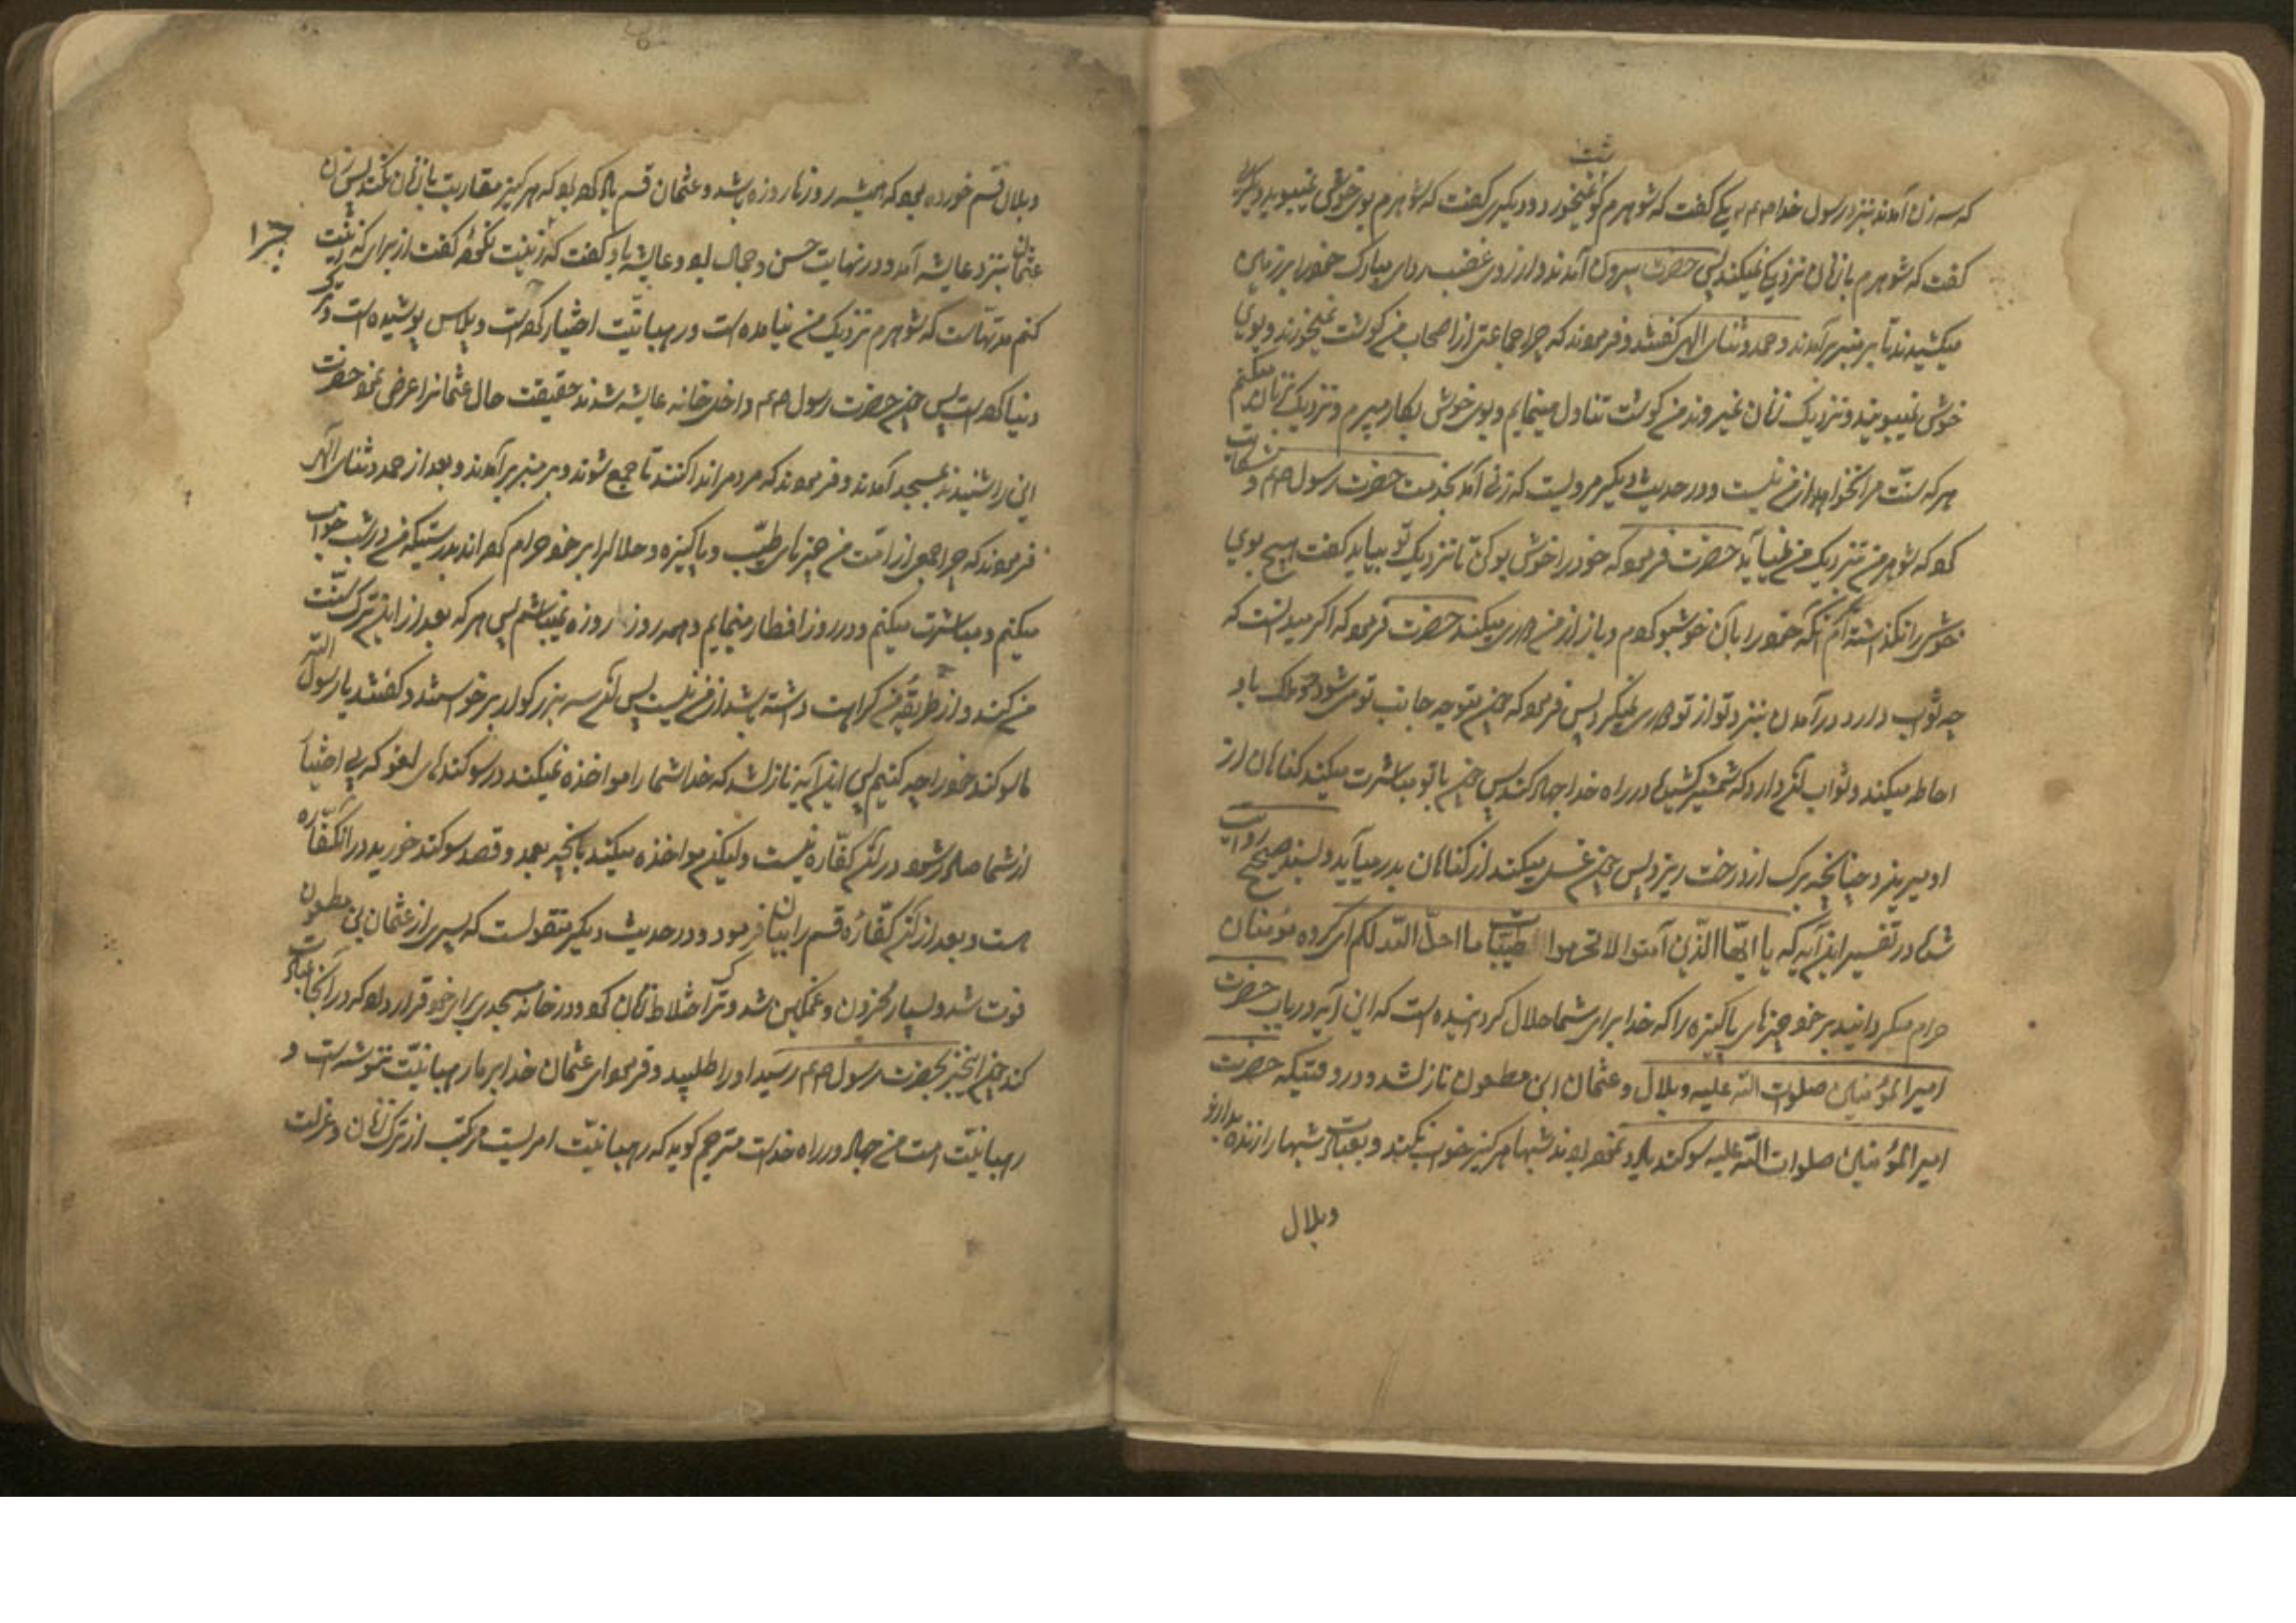 که سه زن آمدند بنزد رسول خدا صم یکی گفت که شوهرم گوشت نمیخورد و دیگری گفت که شوهرم بوی خوشی نمیبوید و دیگری
گفت که شوهرم با زنان نزدیکی نمیکند پس حضرت بیرون آمدند و از روی غضب ردای مبارک خود را بر زمین
میکشیدند تا بر منبر برآمدند و حمد و ثنای الهی گفتند و فرمودند که چرا جماعتی از اصحاب من گوشت نمیخورند و بوی
خوش نمیبویند و نزدیک زنان نمیروند من گوشت تناول مینمایم و بوی خوش بکار میبرم و نزدیکی زنان میکنم
هر که سنت مرا نخواهد از من نیست و در حدیث دیگر مرویست که زنی آمد بخدمت حضرت رسول صم و شکایت
کرد که شوهر من نزدیک من نمیآید حضرت فرمود که خود را خوش بو کن تا نزدیک تو بیاید گفت هیچ بوی
خوشی را نگذاشته‌ام مگر آنکه خود را بآن خوشبو کردم و باز از من دوری میکند حضرت فرمود که اگر میدانست که
چه ثواب دارد در آمدن بنزد تو از تو دوری نمیکرد پس فرمود که چون متوجه جانب تو میشود دو ملک باو
احاطه میکند و ثواب آن دارد که شمشیر کشیده در راه خدا جهاد کند پس چون با تو مباشرت میکند گناهان از
او میریزد چنانچه برگ از درخت ریزد پس چون غسل میکند از گناهان بدر میآید و بسند صحیح روایت
شده در تفسیر این آیه که یا ایها الذین آمنوا لا تحرموا طیبات ما احل الله لکم ای گروه مؤمنان
حرام مگردانید بر خود چیزهای پاکیزه را که خدا برای شما حلال گردانیده است که این آیه در باب حضرت
امیر المؤمنین صلوات الله علیه و بلال و عثمان ابن مظعون نازل شد و در وقتیکه حضرت
امیر المؤمنین صلوات الله علیه سوگند یاد نموده بودند شبها هرگز خواب نکند و بعبادت شبها را زنده بدارند
وبلال
و بلال قسم خورده بود که همیشه روزها روزه باشد و عثمان قسم یاد کرده بود که هرگز مقاربت با زنان نکند پس زن
عثمان بنزد عایشه آمد و در نهایت حسن و جمال بود و عایشه باو گفت که زینت نکرده گفت از برای که زینت
کنم مدتهاست که شوهرم نزدیک من نیامده است و رهبانیت اختیار کرده است و پلاس پوشیده است و ترک
دنیا کرده است پس چون حضرت رسول صم داخل خانه عایشه شدند حقیقت حال عثمان را عرض نمود حضرت
این را شنیدند بمسجد آمدند و فرمودند که مردم را ندا کنند تا جمع شوند و بر منبر برآمدند و بعد از حمد و ثنای الهی
فرمودند که چرا جمعی از امت من چیزهای طیب و پاکیزه و حلال را بر خود حرام کرده‌اند بدرستیکه من در شب خواب
میکنم و مباشرت میکنم و در روز افطار مینمایم و همه روز روزه نمیباشم پس هر که بعد از این ترک سنت
من کند و از طریقه من کراهت داشته باشد از من نیست پس آن سه بزرگوار برخواستند و گفتند یا رسول الله
ما سوگند خورد را چه کنیم پس این آیه نازل شد که خدا شما را مواخذه نمیکند در سوگندهای لغو که بی اختیار
از شما صادر شود در آن کفاره نیست ولیکن مواخذه میکند بآنچه بعمد و قصد سوگند خورید در آن کفاره
هست و بعد از آن کفاره قسم را بیان فرمود و در حدیث دیگر منقولست که پسری از عثمان بن مظعون
فوت شد و بسیار محزون و غمگین شد و ترک اختلاط زنان کرد و در خانه مسجدی برای خود قرار داد که در آنجا عبادت
کند چون این خبر بحضرت رسول صم رسید او را طلبید و فرمود ای عثمان خدا بر ما رهبانیت ننوشته است و
رهبانیت امت من جهاد در راه خداست مترجم گوید که رهبانیت امریست مرکب از ترک زنان و عزلت